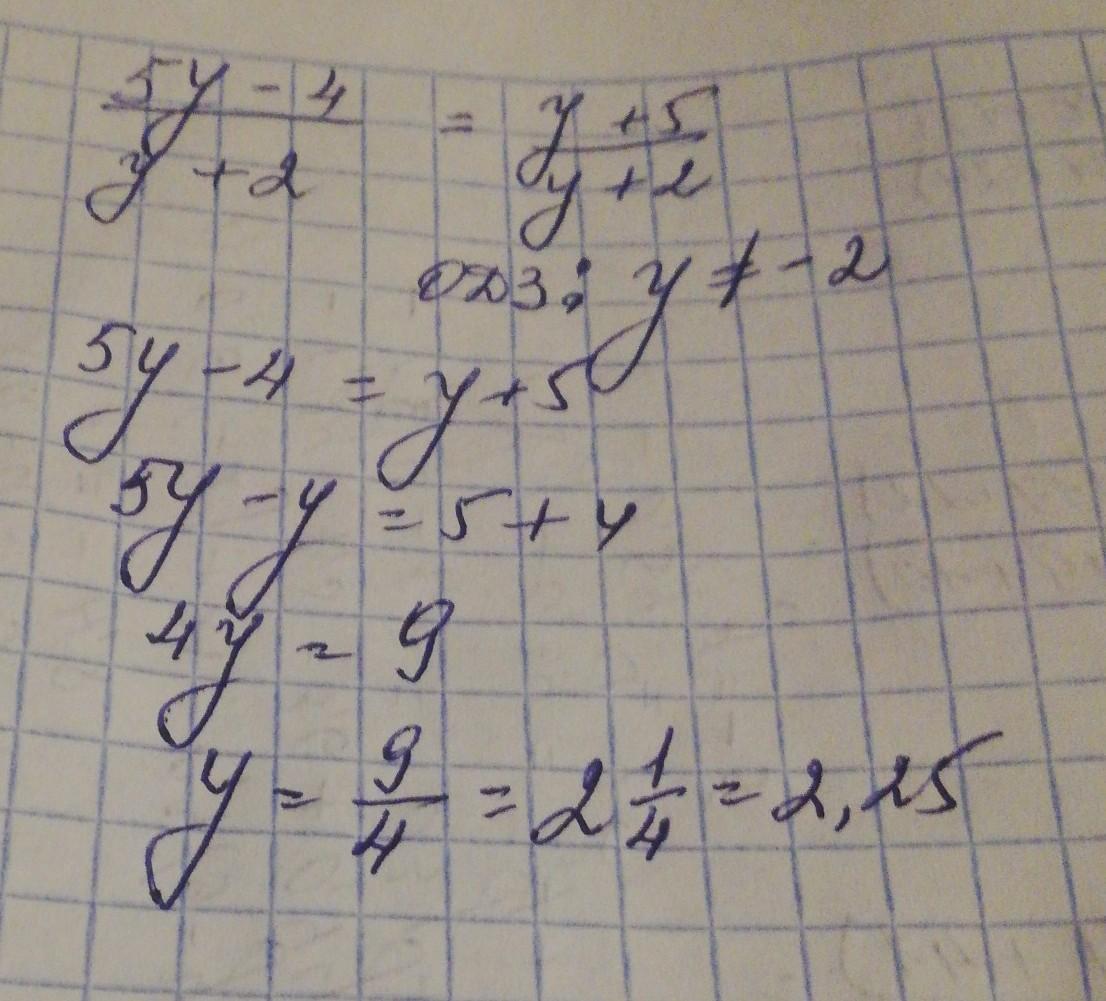 5y - 4 / y + 2 = y + 5 / y + 2
ОДЗ: y ≠ -2
5y - 4 = y + 5
5y - y = 5 + 4
4y = 9
y = 9/4 = 2 1/4 = 2,25